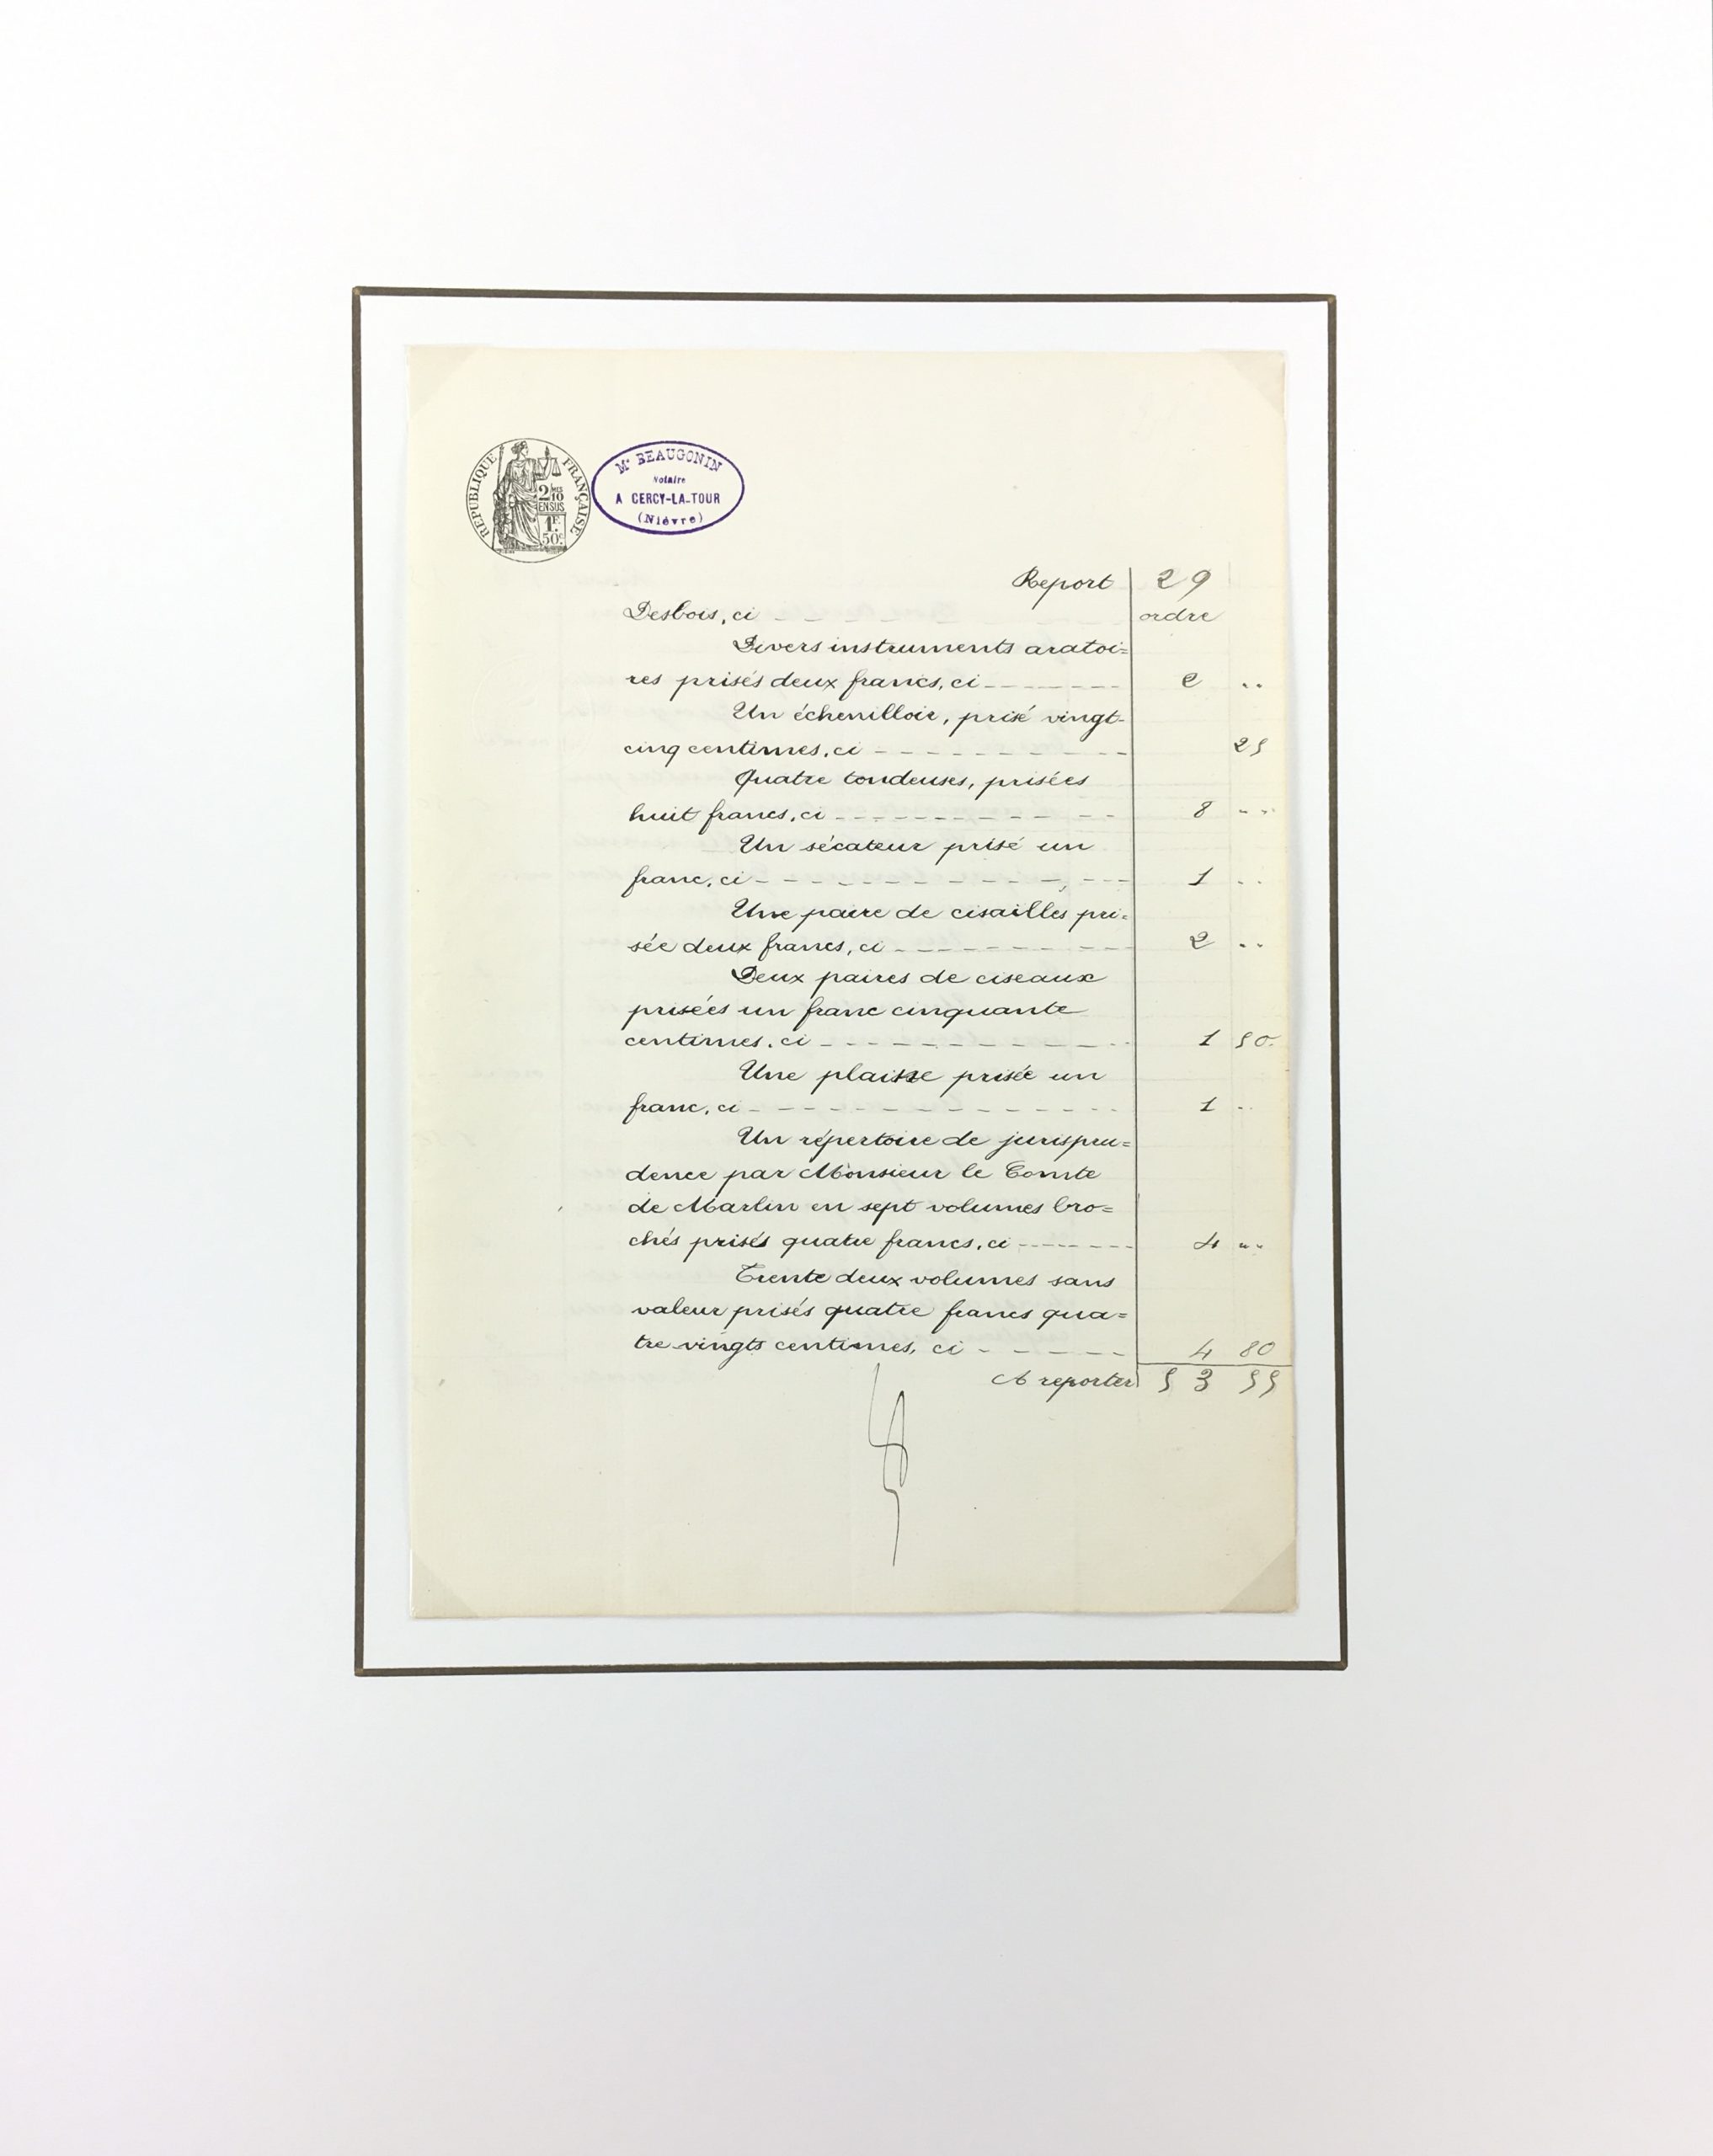 REPUBLIQUE FRANÇAISE
2/10MES
EN SUS
1F.
50C.
Me BEAUGONIN
Notaire
A CERCY-LA-TOUR
(Nièvre)
Report 29
Desbois, ci ordre
Divers instruments aratoi=
res prisés deux francs, ci 2 ..
Un échenilloir, prisé vingt-
cinq centimes, ci 25
Quatre tondeuses, prisées
huit francs, ci 8 ..
Un sécateur prisé un
franc, ci 1 ..
Une paire de cisailles pri=
sée deux francs, ci 2 ..
Deux paires de ciseaux
prisées un franc cinquante
centimes, ci 1 50
Une prisée un
franc, ci 1 ..
Un répertoire de jurispru=
dence par Monsieur le Comte
de Marlin en sept volumes bro=
chés prisés quatre francs, ci 4 ..
Trente deux volumes sans
valeur prisés quatre francs qua=
tre vingts centimes, ci 4 80
A reporter 53 55